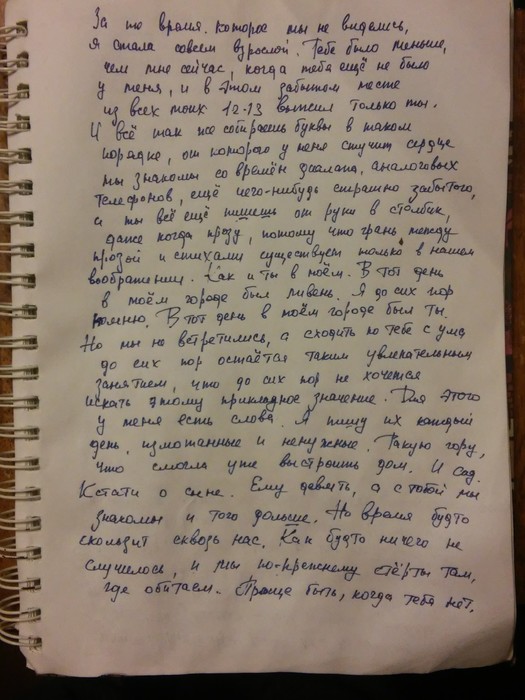 За то время, которое мы не виделись,
я стала совсем взрослой. Тебе было меньше,
чем мне сейчас, когда тебя ещё не было
у меня, и в этом забытом месте
из всех моих 12-13 выжил только ты.
И всё так же собираешь буквы в таком
порядке, от которого у меня стучит сердце
мы знакомы со времён диалапа, аналоговых
телефонов, ещё чего-нибудь страшно забытого,
и ты всё ещё пишешь от руки в столбик,
даже когда прозу, потому что грань между
прозой и стихами существует только в нашем
воображении. Как и ты в моём. В тот день
в моём городе был ливень. Я до сих пор
помню. В тот день в моём городе был ты.
Но мы не встретились, а сходить по тебе с ума
до сих пор остаётся таким увлекательным
занятием, что до сих пор не хочется
искать этому прикладное значение. Для этого
у меня есть слова. Я пишу их каждый
день, измотанные и ненужные. Такую гору,
что смогла уже выстроить дом. И сад.
Кстати о сыне. Ему девять, а с тобой мы
знакомы и того дольше. Но время будто
скользит сквозь нас. Как будто ничего не
случилось, и мы по-прежнему стёрты там,
где обитаем. Проще быть, когда тебя нет.